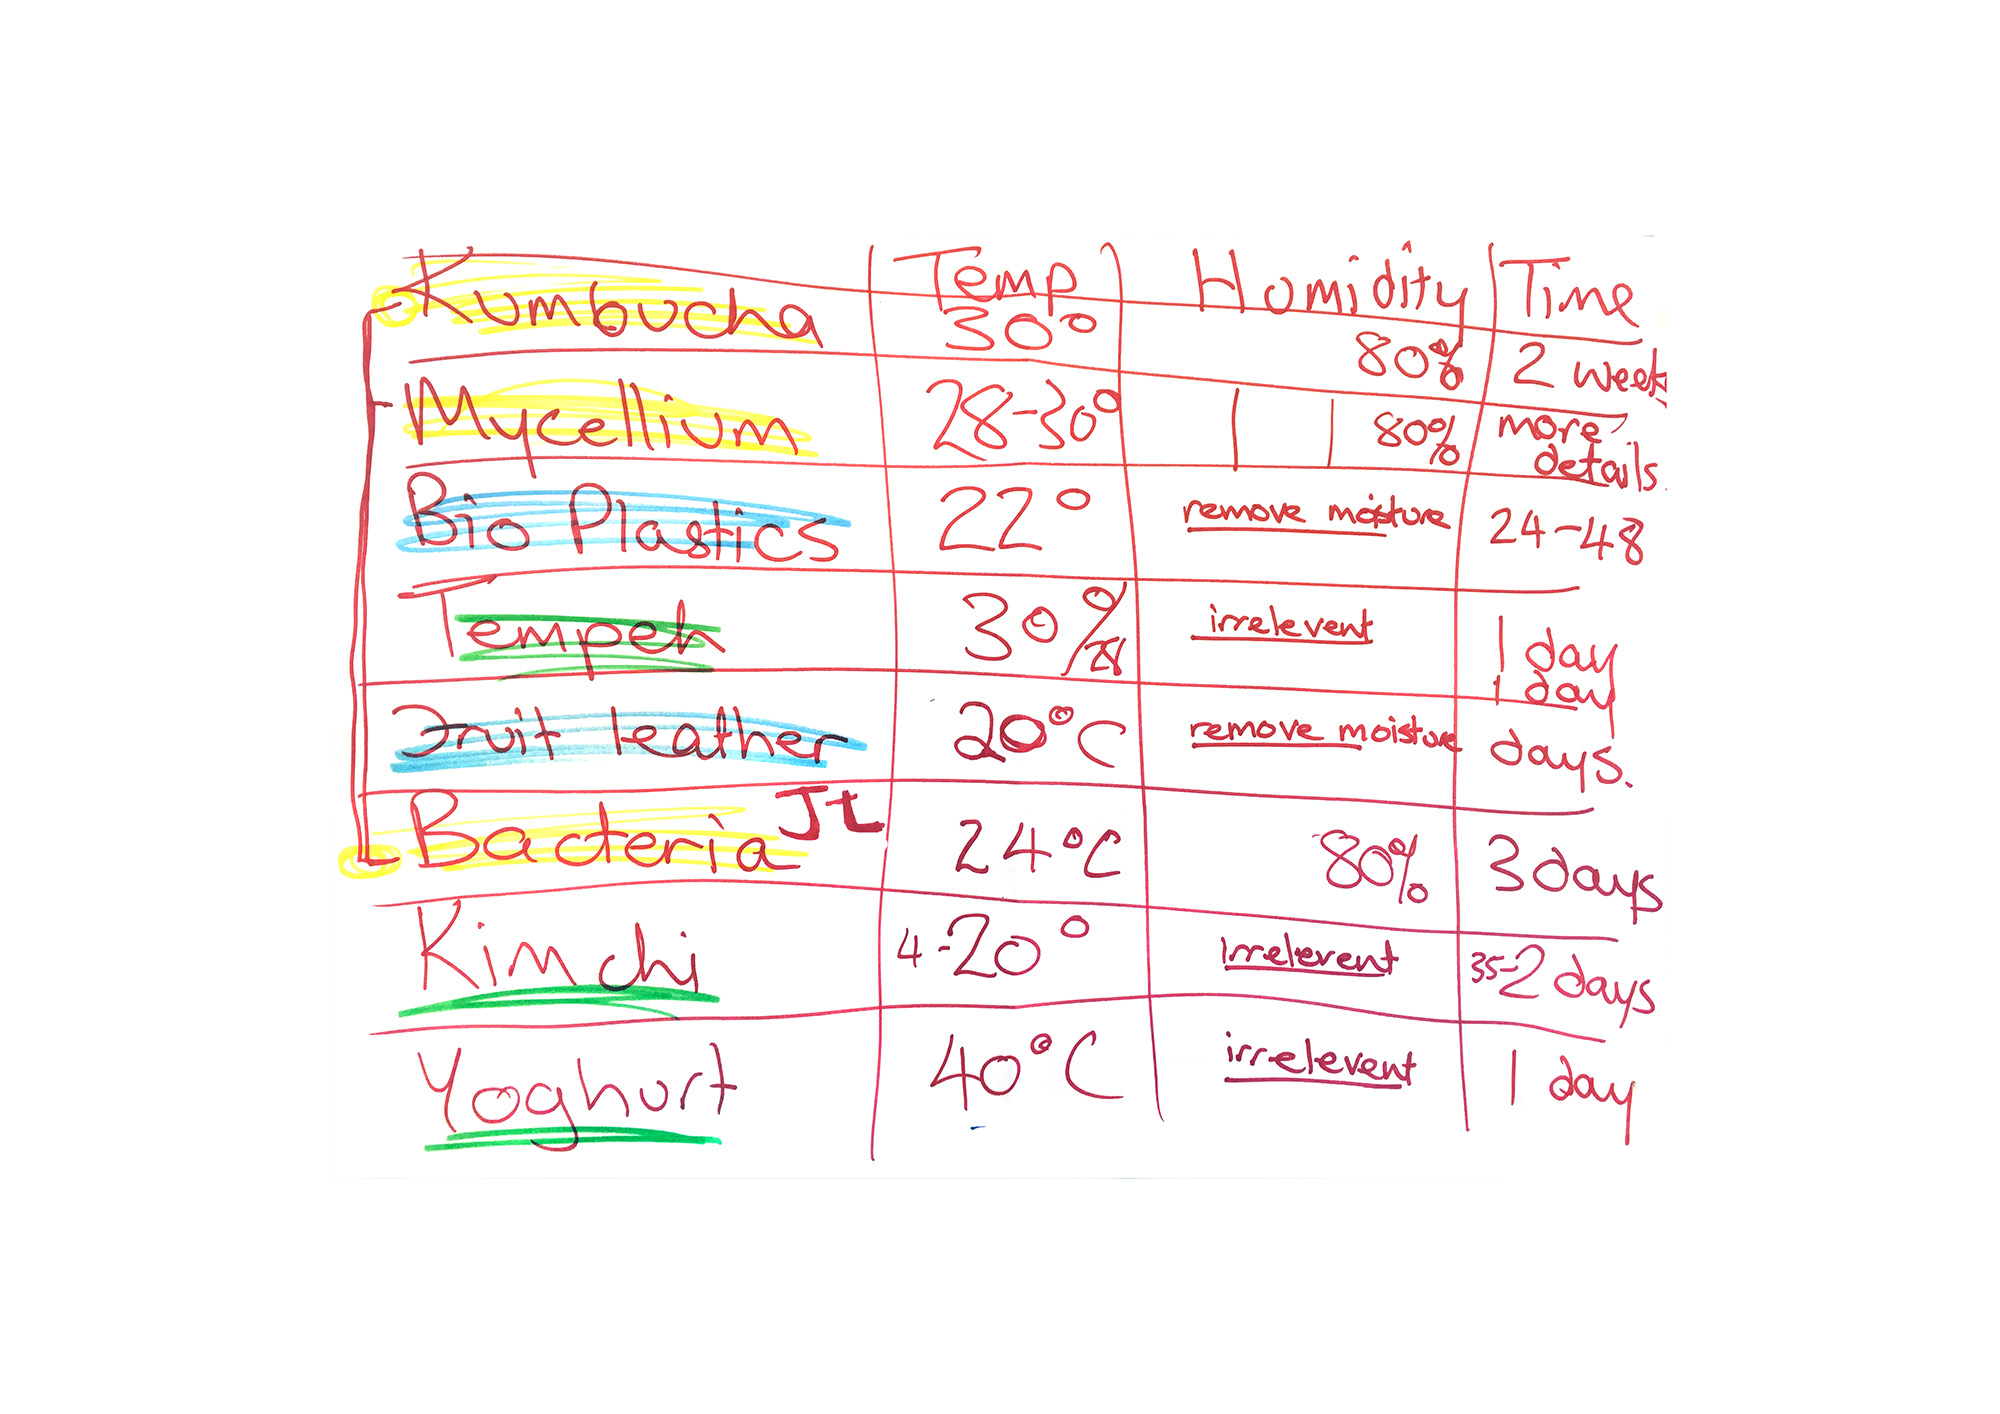 Temp Humidity Time
Kumbucha 30° 80% 2 week
Mycellium 28-30° 80% more details
Bio Plastics 22° remove moisture 24-48
Tempeh 30°/28 irrelevent 1 day
1 day
Fruit leather 20°C remove moisture days.
Bacteria Jt 24°C 80% 3 days
Kimchi 4-20° irrelevent 35-2 days
Yoghurt 40°C irrelevent 1 day